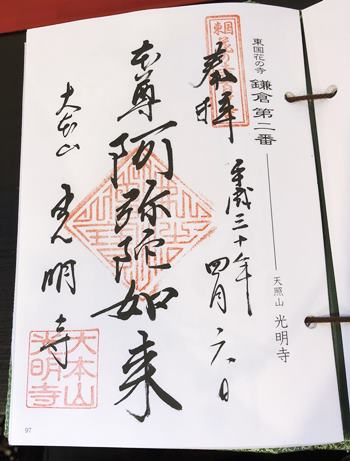 東国花の寺 鎌倉第二番
天照山 光明寺
奉拝
平成三十年四月六日
本尊阿弥陀如来
大本山 光明寺
大本山
光明寺
97